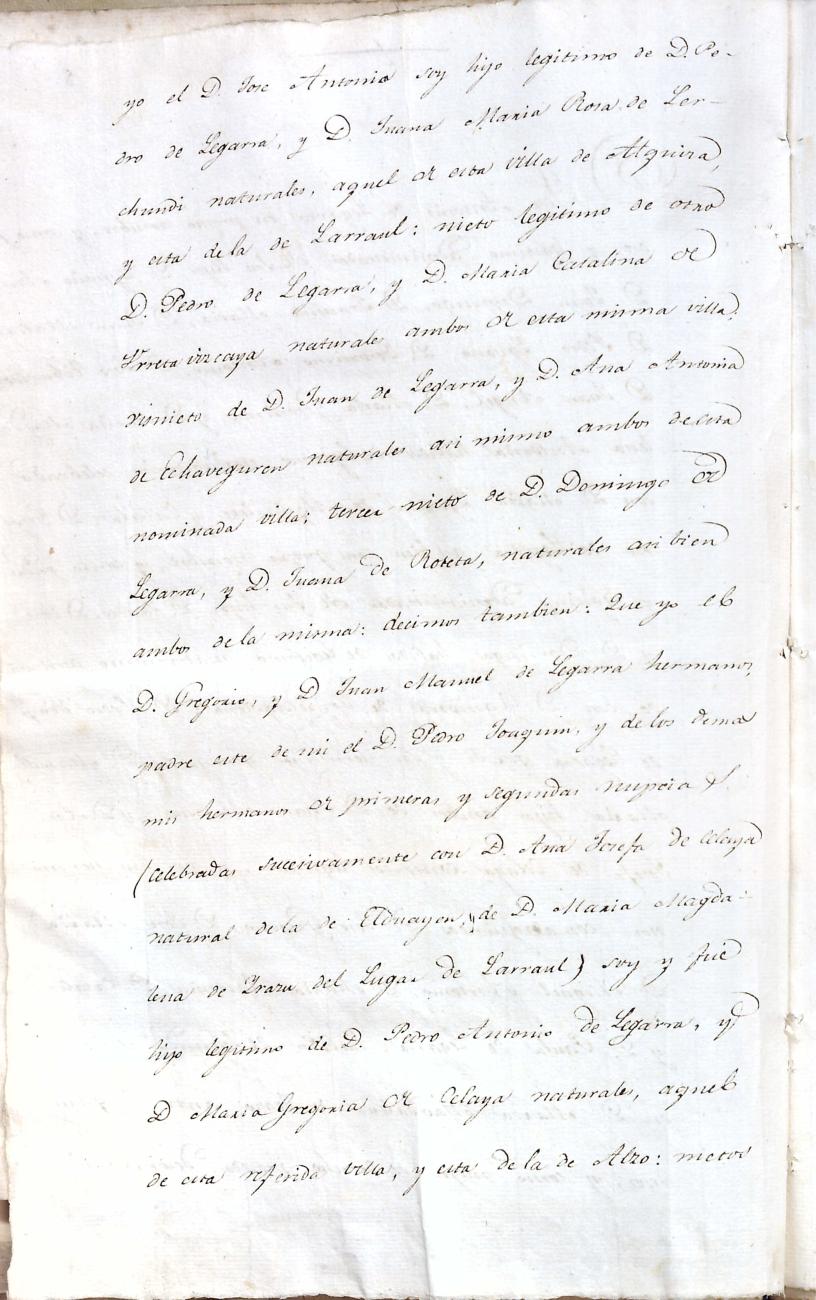 yo el D. Jose Antonio soy hijo legitimo de D. Pe-
dro de Legarra, y D. Juana Maria Rosa de Ler-
chundi naturales, aquel de esta villa de Alquiza,
y esta de la de Larraul: nieto legitimo de otro
D. Pedro de Legarra, y D. Maria Catalina de
Yrreta vizcaya naturales ambos de esta misma villa:
visnieto de D. Juan de Legarra, y D. Ana Antonia
de Echaveguren naturales asi mismo ambos de esta
nominada villa; tercer nieto de D. Domingo de
Legarra, y D. Juana de Roteta, naturales asi bien
ambos de la misma: decimos tambien: Que yo el
D. Gregorio, y D Juan Manuel de Legarra hermanos,
padre este de mi el D. Pedro Joaquin, y de los demas
mis hermanos de primeras y segundas nupcias
(celebradas sucesivamente con D. Ana Josefa de Celaya
natural de la de Elduayen, y de D. Maria Magda-
lena de Yrazu del Lugar de Larraul) soy y fue
hijo legitimo de D. Pedro Antonio de Legarra, y
D Maria Gregoria de Celaya naturales, aquel
de esta referida villa, y esta de la de Alzo: nietos